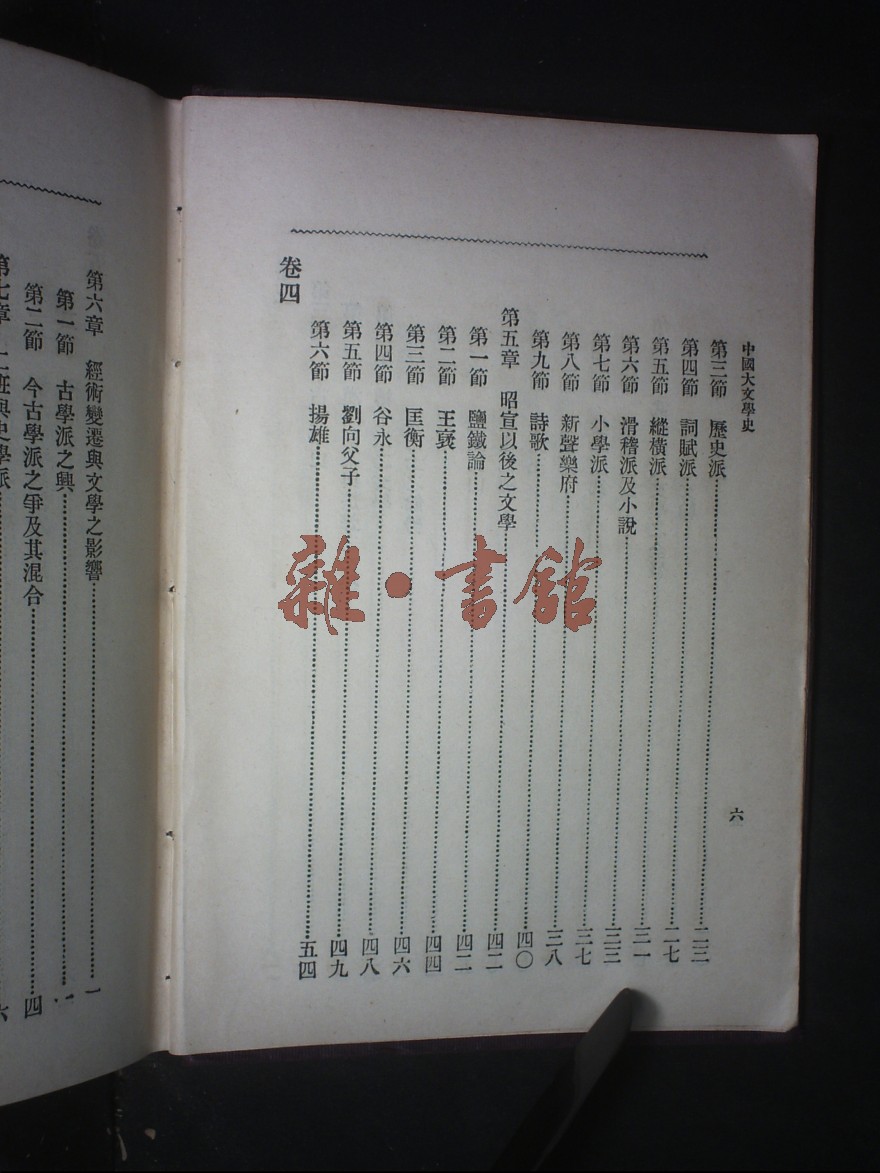 中國大文學史
六
第三節 歷史派 二三
第四節 詞賦派 二七
第五節 縱橫派 三一
第六節 滑稽派及小說 三三
第七節 小學派 三七
第八節 新聲樂府 三八
第九節 詩歌 四〇
第五章 昭宣以後之文學 四二
第一節 鹽鐵論 四二
第二節 王襃 四四
第三節 匡衡 四六
第四節 谷永 四八
第五節 劉向父子 四九
第六節 揚雄 五四
卷四
第六章 經術變遷與文學之影響 一
第一節 古學派之興 一
第二節 今古學派之爭及其混合 四
第七章 二班與史學派 六
雜·書館